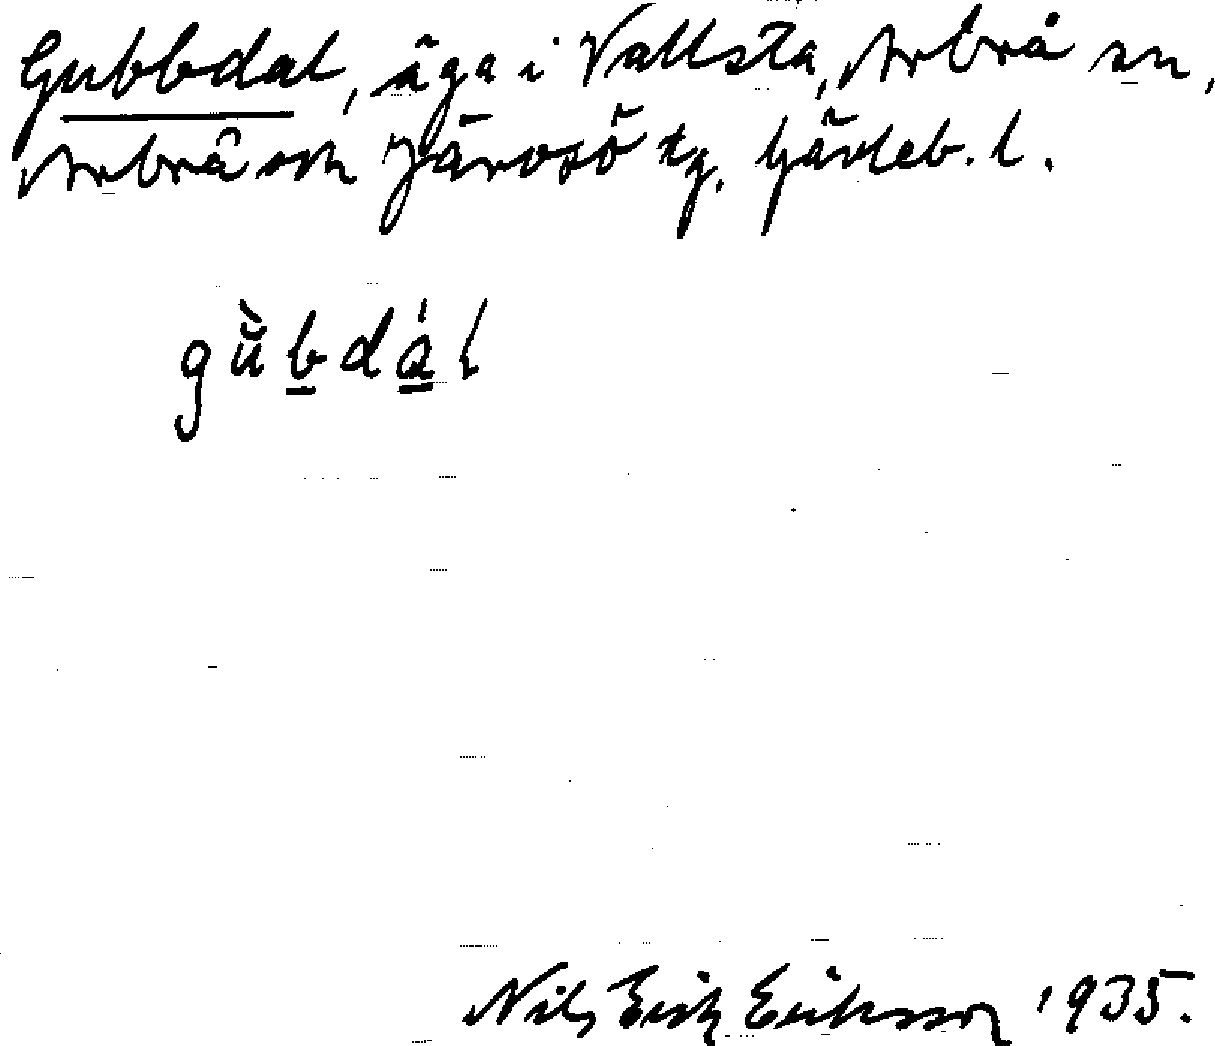 Gubbdal, äga i Vallsta, Arbrå sn,
Arbrå och Järvsö tg. Gävleb. l.
gùb̲dá̲l
Nils Erik Eriksson 1935.